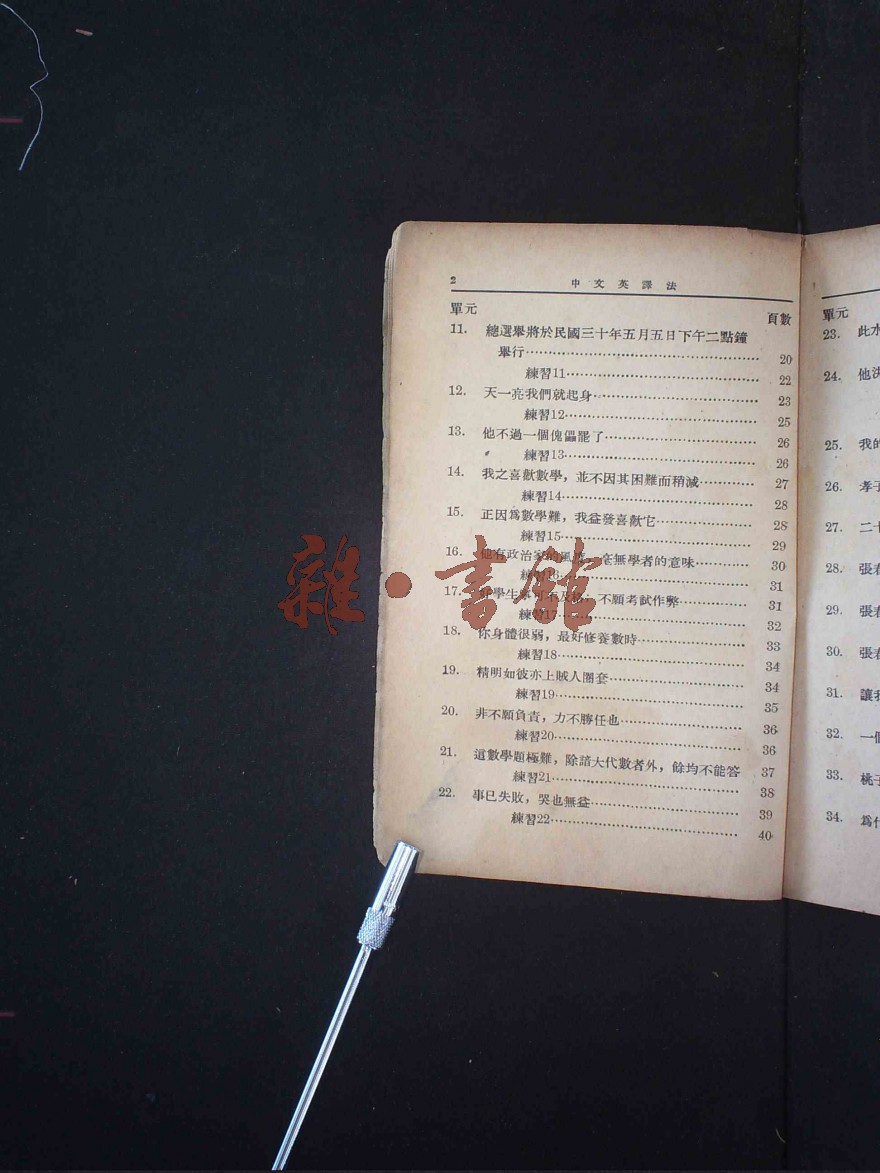 2 中文英譯法
單元 頁數
11. 總選舉將於民國三十年五月五日下午二點鐘
舉行 20
練習11 22
12. 天一亮我們就起身 23
練習12 25
13. 他不過一個傀儡罷了 26
練習13 26
14. 我之喜歡數學，並不因其困難而稍減 27
練習14 28
15. 正因爲數學難，我益發喜歡它 28
練習15 29
16. 他有政治家的風度，毫無學者的意味 30
練習16 31
17. 好學生寧可不及格，不願考試作弊 31
練習17 32
18. 你身體很弱，最好修養數時 33
練習18 34
19. 精明如彼亦上賊人圈套 34
練習19 35
20. 非不願負責，力不勝任也 36
練習20 36
21. 這數學題極難，除諳大代數者外，餘均不能答 37
練習21 38
22. 事已失敗，哭也無益 39
練習22 40
單元
23. 此水
24. 他決
25. 我的
26. 孝子
27. 二十
28. 張春
29. 張春
30. 張春
31. 讓我
32. 一個
33. 桃子
34. 爲什
雜·書館